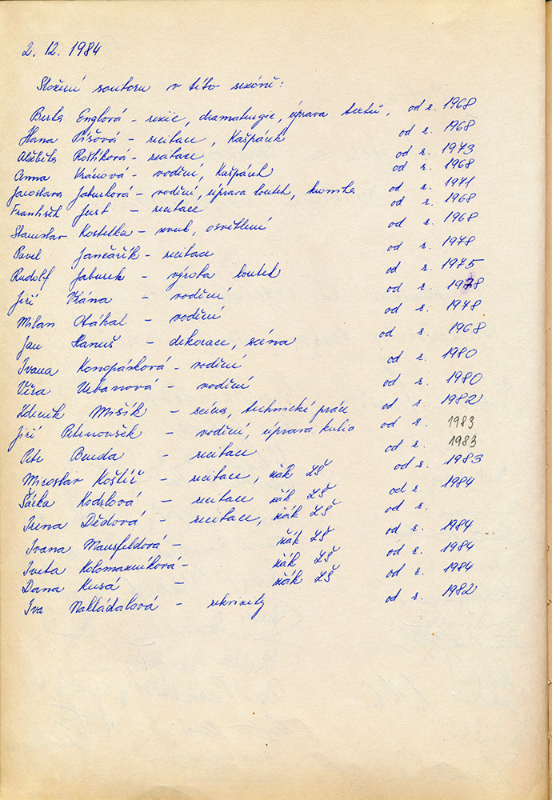 2. 12. 1984
Složení souboru v této sezóně:
Berta Englová - režie, dramaturgie, úprava textů, od r. 1968
Hana Píšová - recitace, Kašpárek od r. 1968
Alžběta Roštíková - recitace od r. 1973
Anna Vránová - vodění, Kašpárek od r. 1968
Jaroslava Jaburková - vodění, úprava loutek, kronika od r. 1971
František Just - recitace od r. 1968
Stanislav Kostelka - zvuk, osvětlení od r. 1968
Pavel Jančařík - recitace od r. 1978
Rudolf Jaburek - výroba loutek od r. 1975
Jiří Vrána - vodění od r. 1978
Milan Otáhal - vodění od r. 1978
Jan Hanuš - dekorace, scéna od r. 1968
Ivana Konopásková - vodění od r. 1980
Věra Urbanová - vodění od r. 1980
Zdeněk Mišík - scéna, technické práce od r. 1982
Jiří - vodění, úprava kulis od r. 1983
Petr Benda - recitace od r. 1983
Miroslav Koštíř - recitace, žák LŠ od r. 1983
Šárka - recitace žák LŠ od r. 1984
Irena Dědová - recitace, žák LŠ od r.
Ivana Mansfeldová - žák LŠ od r. 1984
Iveta Kolomazníková - žák LŠ od r. 1984
Dana Kusá - žák LŠ od r. 1984
Iva Nakládalová - rekvizity od r. 1982